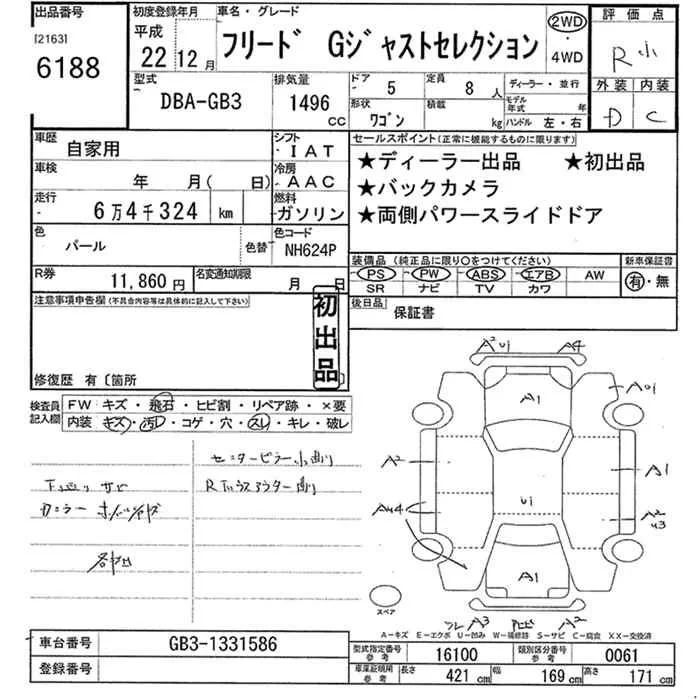 出品番号
[2163]
6188
初度登録年月
平成
22 12 月
車名・グレード
フリード Gジャストセレクション
2WD
・
4WD
評価点
R小
外装 内装
D C
型式
DBA-GB3
排気量
1496
CC
ドア
5
定員
8 人
形状
ワゴン
積載
kg
ディーラー・並行
モデル年式 年
ハンドル 左・右
車歴
自家用
シフト
・IAT
車検
年 月( 日)
冷房
・AAC
走行
6万4千324 km
燃料
ガソリン
色
パール
色替
色コード
NH624P
R券
11,860 円
名変通知期限
月 日
セールスポイント(正常に機能するものに限ります)
★ディーラー出品 ★初出品
★バックカメラ
★両側パワースライドドア
装備品 (純正品に限り○をつけてください)
PS PW ABS エアB AW
SR ナビ TV カワ
新車保証書
有・無
後日品
保証書
注意事項申告欄(不具合内容等は具体的に記入して下さい)
初出品
修復歴 有〔箇所
検査員記入欄
FW キズ・飛石・ヒビ割・リペア跡・×要
内装 キズ・汚れ・コゲ・穴・スレ・キレ・破レ
センターピラー小凹
下廻り サビ
A2 U1 A4
A1
A01
A2
A1
U1
AU4
A2
U3
A1
A3
A2
スペア
A-キズ E-エクボ U-凹み W-補修跡 S-サビ C-腐食 XX-交換済
車台番号
GB3-1331586
登録番号
型式指定番号
参考
16100
類別区分番号
参考
0061
車庫証明用
参考
長さ
421 cm
幅
169 cm
高さ
171 cm